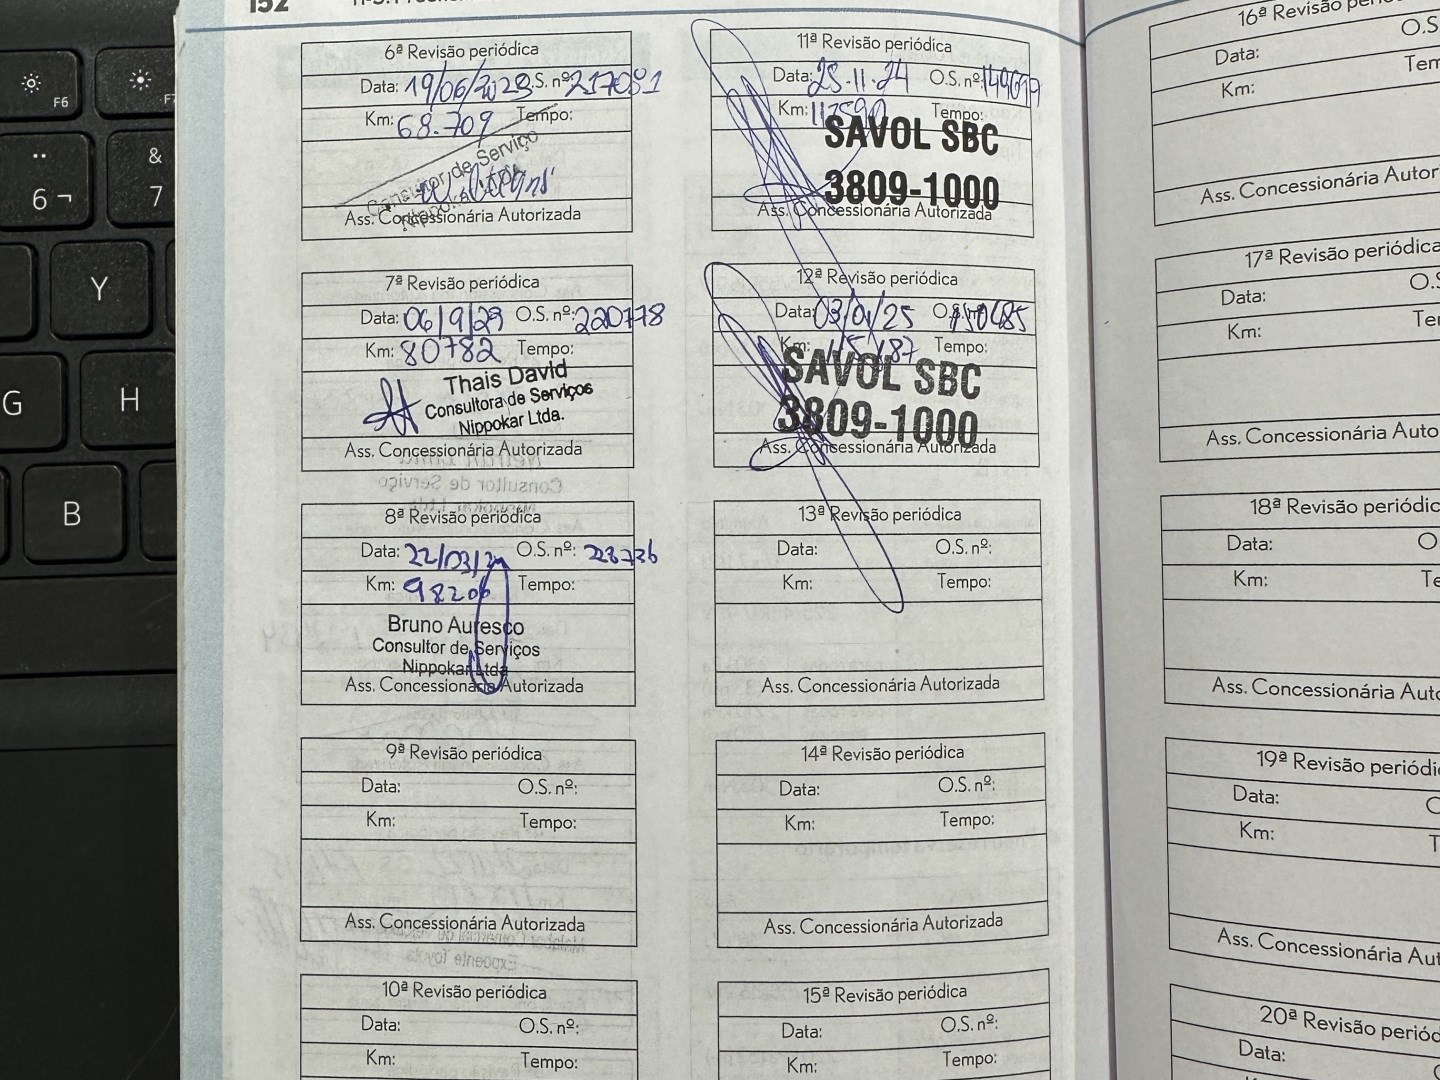 152
6ª Revisão periódica
Data: 19/06/2023 O.S. nº 217081
Km: 68.709 Tempo:
Consultor de Serviço
Ass. Concessionária Autorizada
7ª Revisão periódica
Data: 06/9/23 O.S. nº: 220778
Km: 80782 Tempo:
Thais David
Consultora de Serviços
Nippokar Ltda.
Ass. Concessionária Autorizada
8ª Revisão periódica
Data: 22/03/24 O.S. nº: 228736
Km: 98206 Tempo:
Bruno Auresco
Consultor de Serviços
Nippokar Ltda
Ass. Concessionária Autorizada
9ª Revisão periódica
Data: O.S. nº:
Km: Tempo:
Ass. Concessionária Autorizada
10ª Revisão periódica
Data: O.S. nº:
Km: Tempo:
11ª Revisão periódica
Data: 25.11.24 O.S. nº: 149019
Km: 113590 Tempo:
SAVOL SBC
3809-1000
Ass. Concessionária Autorizada
12ª Revisão periódica
Data: 03/01/25 O.S. nº: 150485
Km: 115187 Tempo:
SAVOL SBC
3809-1000
Ass. Concessionária Autorizada
13ª Revisão periódica
Data: O.S. nº:
Km: Tempo:
Ass. Concessionária Autorizada
14ª Revisão periódica
Data: O.S. nº:
Km: Tempo:
Ass. Concessionária Autorizada
15ª Revisão periódica
Data: O.S. nº:
Km: Tempo:
16ª Revisão
Data: O.S
Km: Tem
Ass. Concessionária Autor
17ª Revisão periódica
Data: O.S
Km: Te
Ass. Concessionária Auto
18ª Revisão periódic
Data: O
Km: Te
Ass. Concessionária Aut
19ª Revisão periódi
Data:
Km: T
Ass. Concessionária Aut
20ª Revisão periód
Data:
F6
F7
6 ¬
&
7
Y
G
H
B